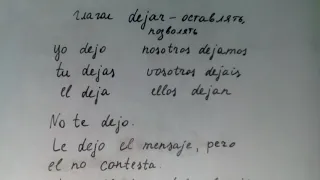 глагол dejar - оставлять,
позволять
yo dejo nosotros dejamos
tu dejas vosotros dejáis
el deja ellos dejan
No te dejo.
Le dejo el mensaje, pero
el no contesta.